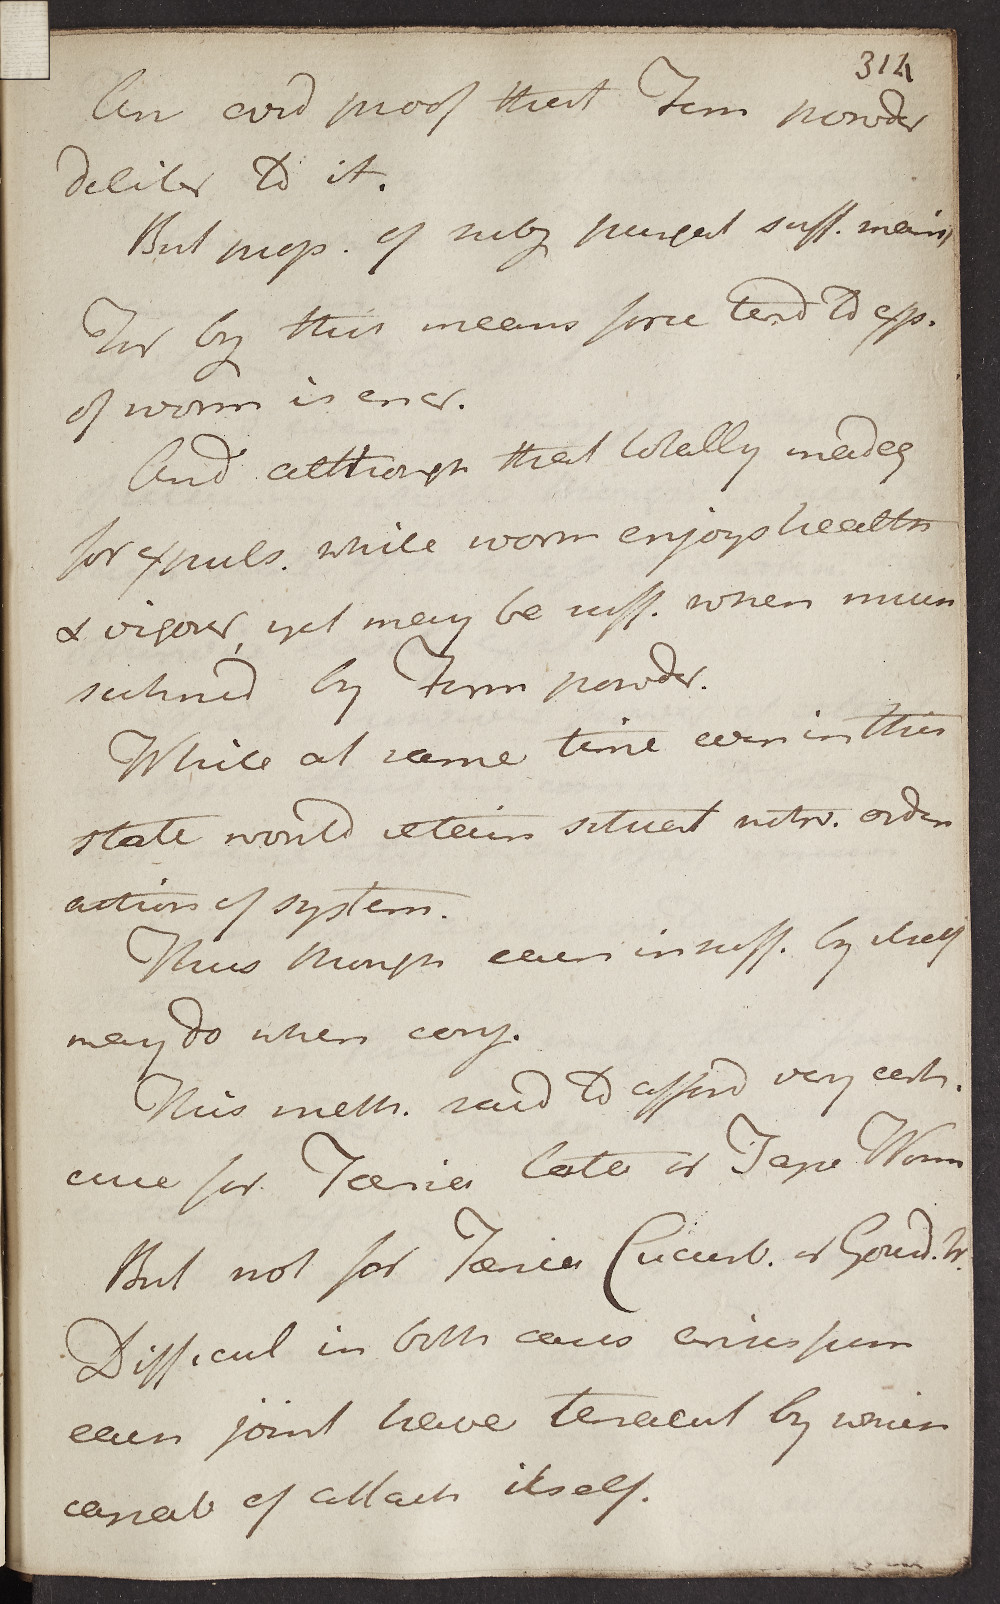 314
An evid proof that Fern powder
deliter to it.
But prop. of subq purgat suff. main
For by this means force tend to exp.
of worm is encr.
And although that totally inadeq
for expuls. while worm enjoys health
& vigour, yet may be suff. when much
sickned by Fern powder.
While at same time even in this
state would retain situat notw. ordin
action of system.
Thus though each insuff. by itself
may do when conj.
This meth. said to afford very cert.
cure for Tænia lata or Tape Worm
But not for Tænia Cucurb. or Gourd. W.
Difficul in both cases arises from
each joint have tentacul by which
capab of attach itself.